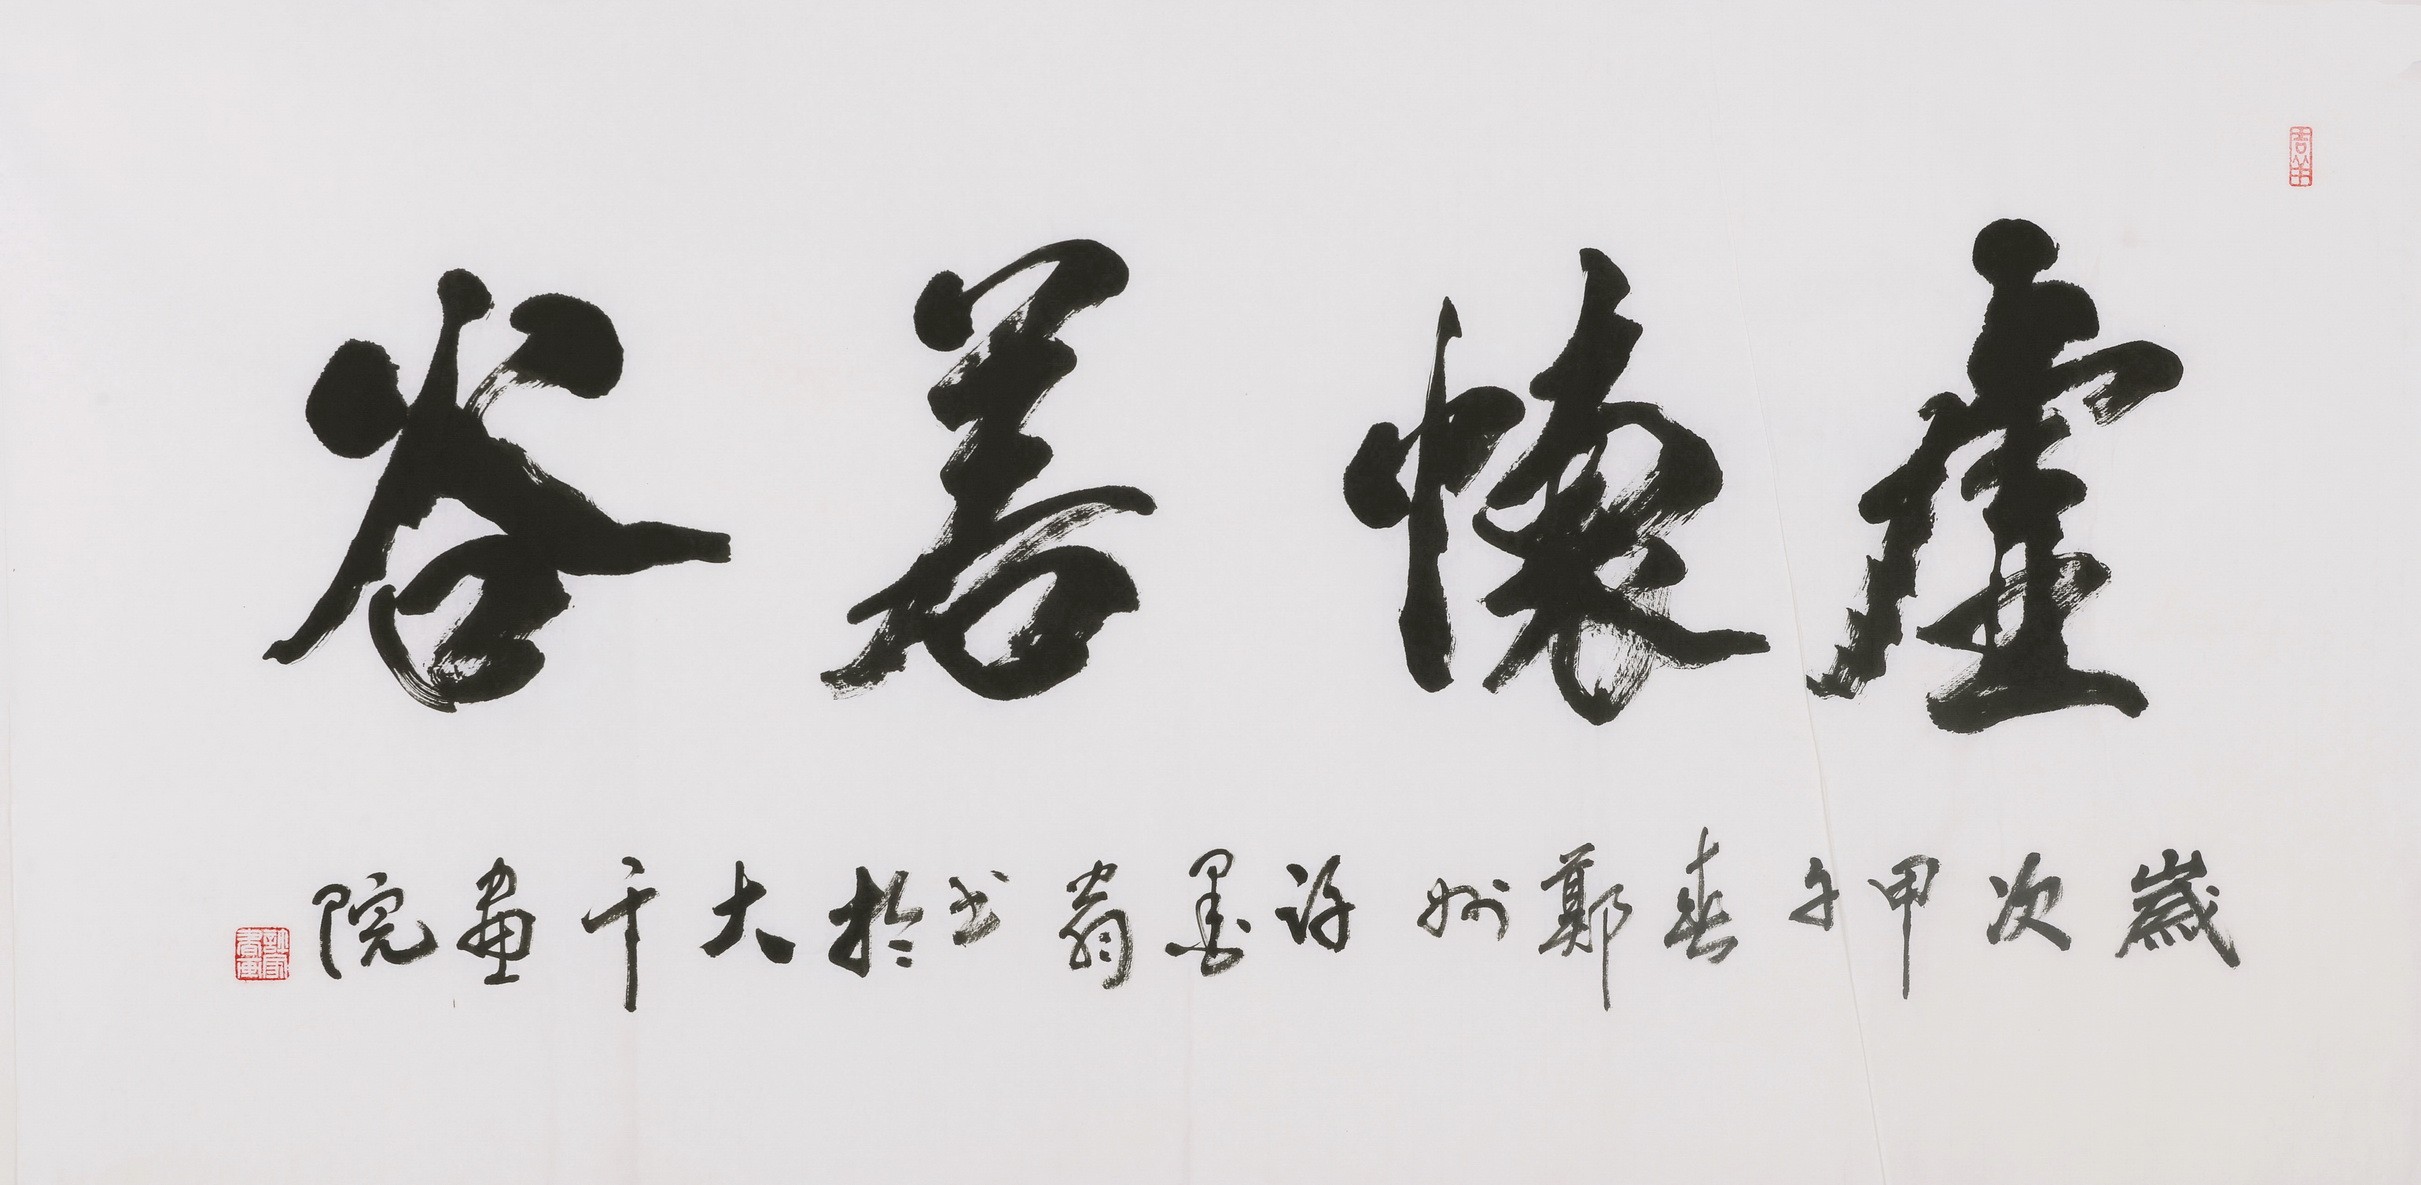 虚懷若谷
歲次甲午春鄭州許墨翁书於大千畫院